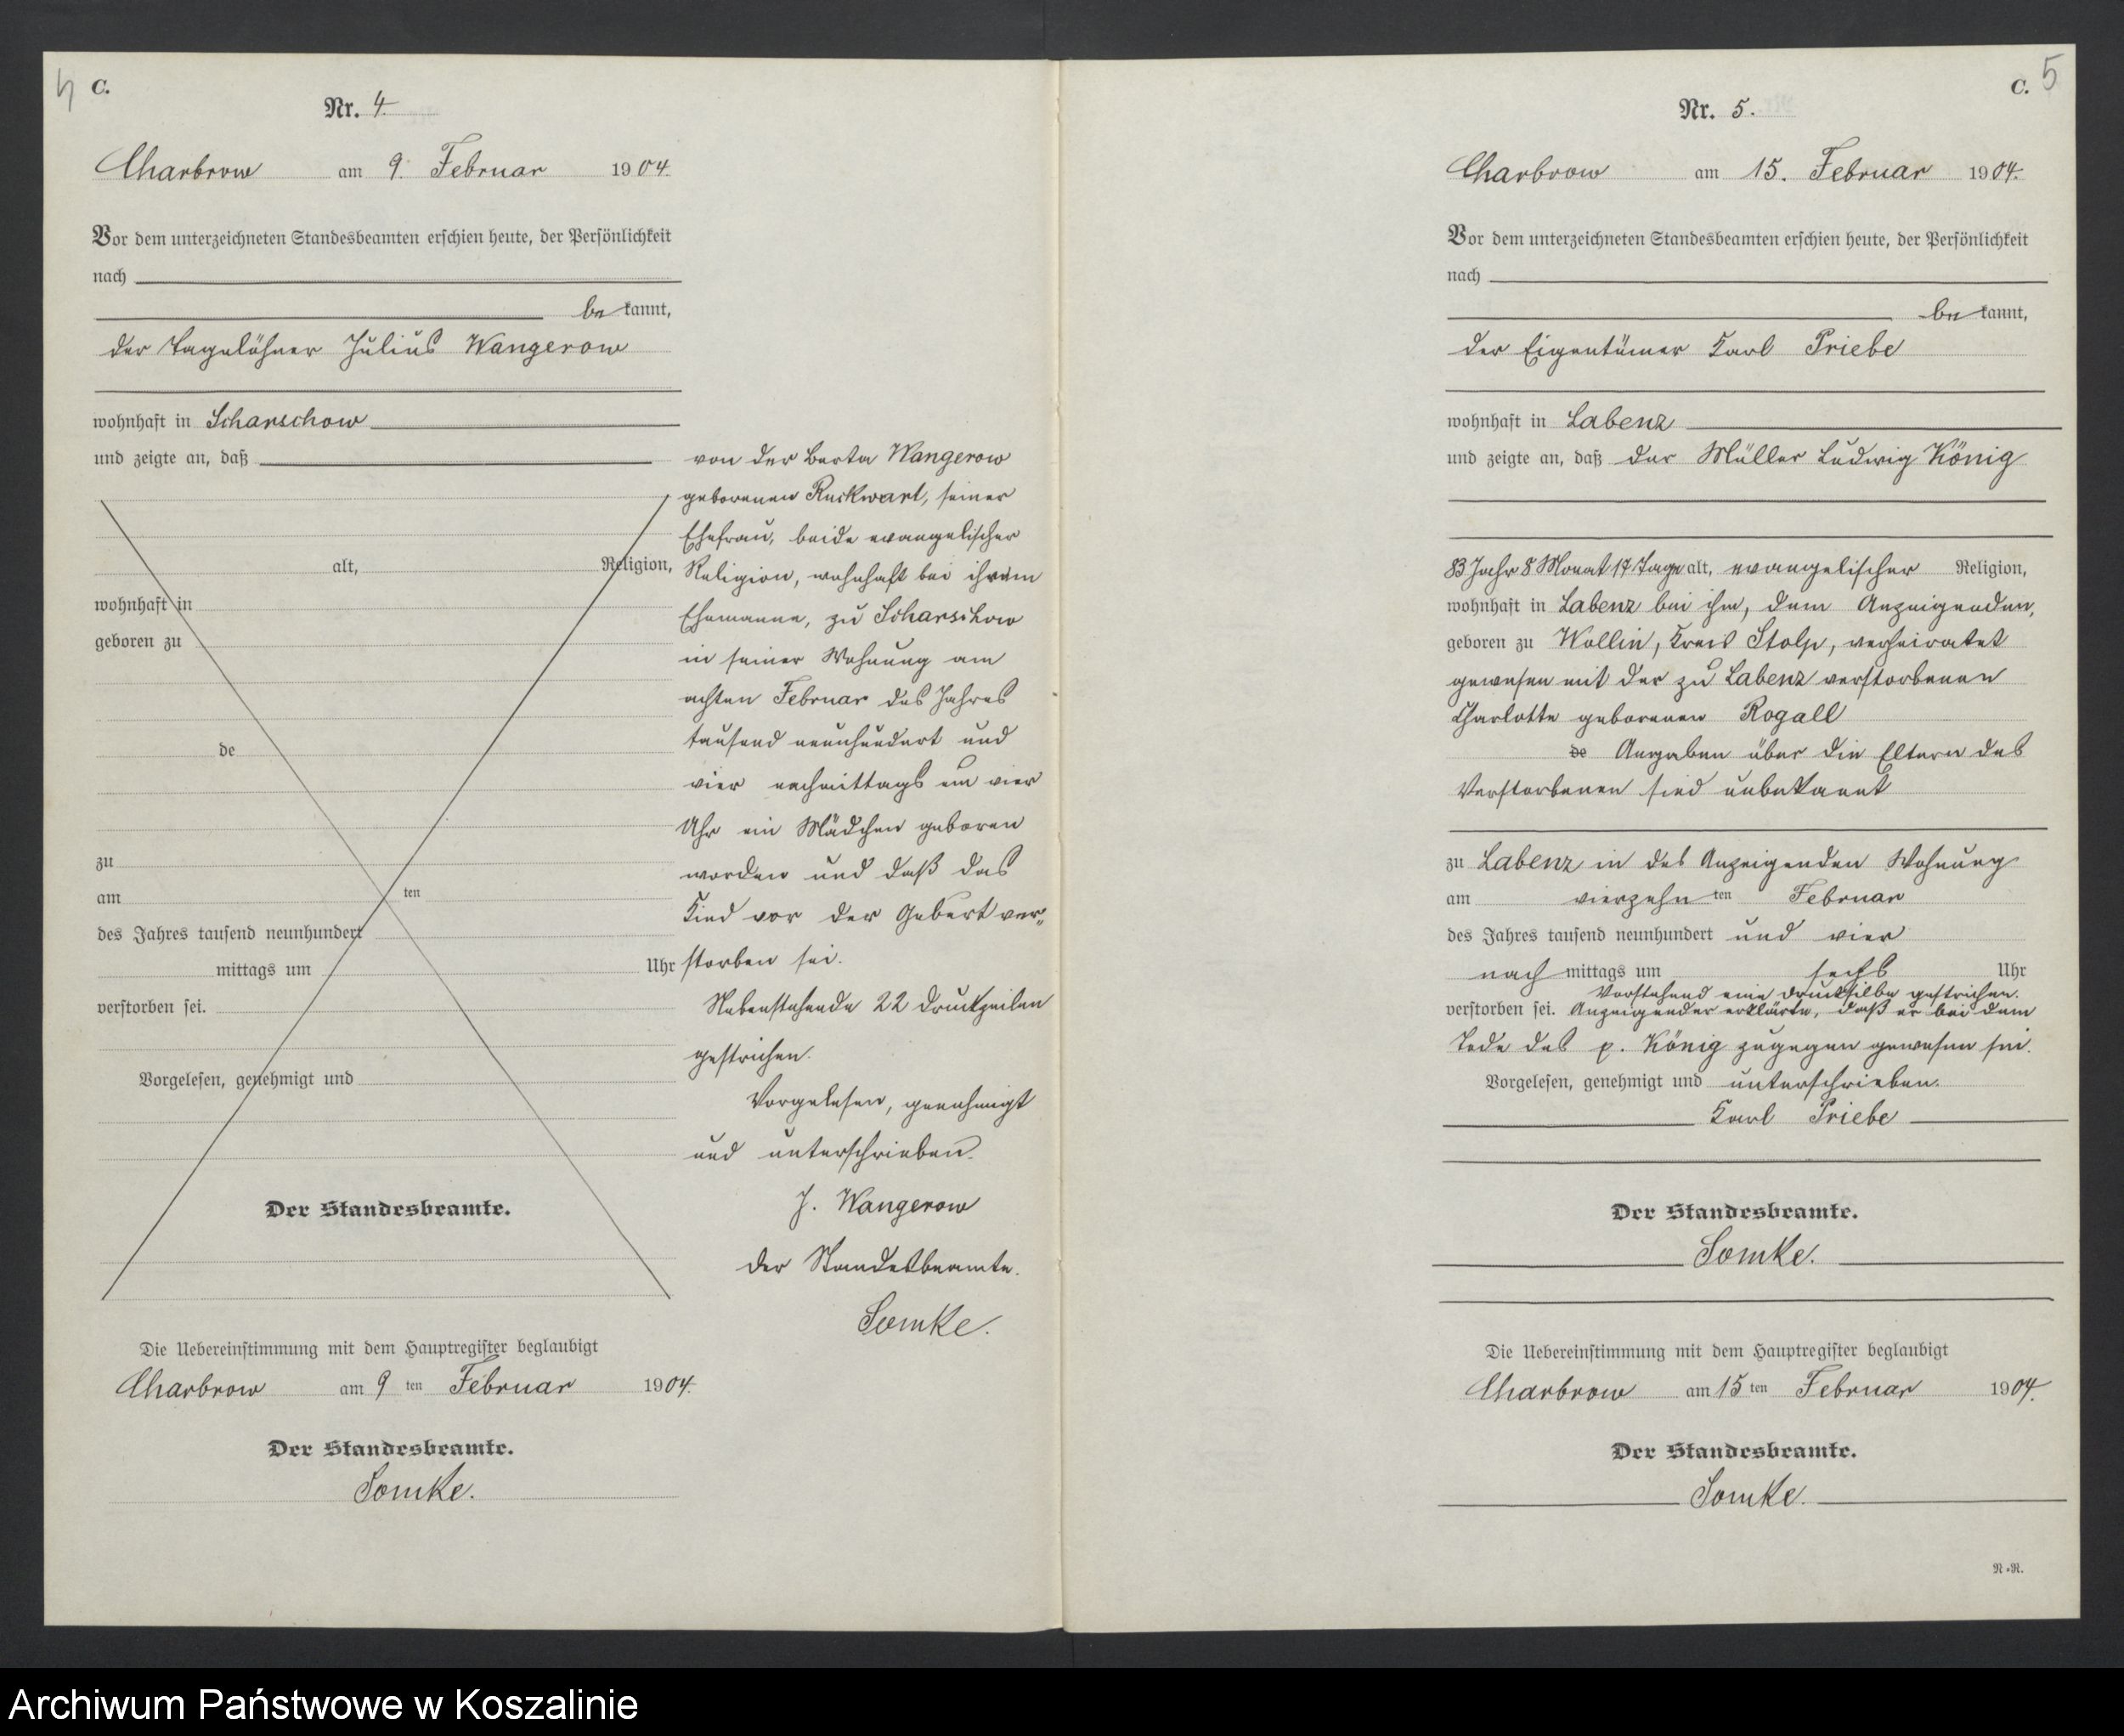 4
C.
Nr. 4.
Charbrow am 9. Februar 1904.
Vor dem unterzeichneten Standesbeamten erschien heute, der Persönlichkeit
nach
be kannt,
der Tagelöhner Julius Wangerow
wohnhaft in Scharschow
und zeigte an, daß
alt, Religion,
wohnhaft in
geboren zu
de
zu
am ten
des Jahres tausend neunhundert
mittags um Uhr
verstorben sei.
Vorgelesen, genehmigt und
Der Standesbeamte.
von der Berta Wangerow
geborenen Ruckwart, seiner
Ehefrau, beide evangelischer
Religion, wohnhaft bei ihrem
Ehemanne, zu Scharschow
in seiner Wohnung am
achten Februar des Jahres
tausend neunhundert und
vier nachmittags um vier
Uhr ein Mädchen geboren
worden und daß das
Kind vor der Geburt ver-
storben sei.
Nebenstehende 22 Druckzeilen
gestrichen.
Vorgelesen, genehmigt
und unterschrieben.
J. Wangerow
Der Standesbeamte.
Somke.
Die Uebereinstimmung mit dem Hauptregister beglaubigt
Charbrow am 9 ten Februar 1904.
Der Standesbeamte.
Somke.
C. 5
Nr. 5.
Charbrow am 15. Februar 1904.
Vor dem unterzeichneten Standesbeamten erschien heute, der Persönlichkeit
nach
be kannt,
der Eigentümer Karl Priebe
wohnhaft in Labenz
und zeigte an, daß der Müller Ludwig König
83 Jahr 8 Monat 17 Tage alt, evangelischer Religion,
wohnhaft in Labenz bei ihm, dem Anzeigenden,
geboren zu Wollin, Kreis Stolp, verheiratet
gewesen mit der zu Labenz verstorbenen
Charlotte geborenen Rogall
de Angaben über die Eltern des
Verstorbenen sind unbekannt
zu Labenz in des Anzeigenden Wohnung
am vierzehn ten Februar
des Jahres tausend neunhundert und vier
nach mittags um sechs Uhr
Vorstehend eine Drucksilbe gestrichen.
verstorben sei. Anzeigender erklärte, daß er bei dem
Tode des p. König zugegen gewesen sei.
Vorgelesen, genehmigt und unterschrieben.
Karl Priebe
Der Standesbeamte.
Somke.
Die Uebereinstimmung mit dem Hauptregister beglaubigt
Charbrow am 15 ten Februar 1904.
Der Standesbeamte.
Somke.
R.R.
Archiwum Państwowe w Koszalinie